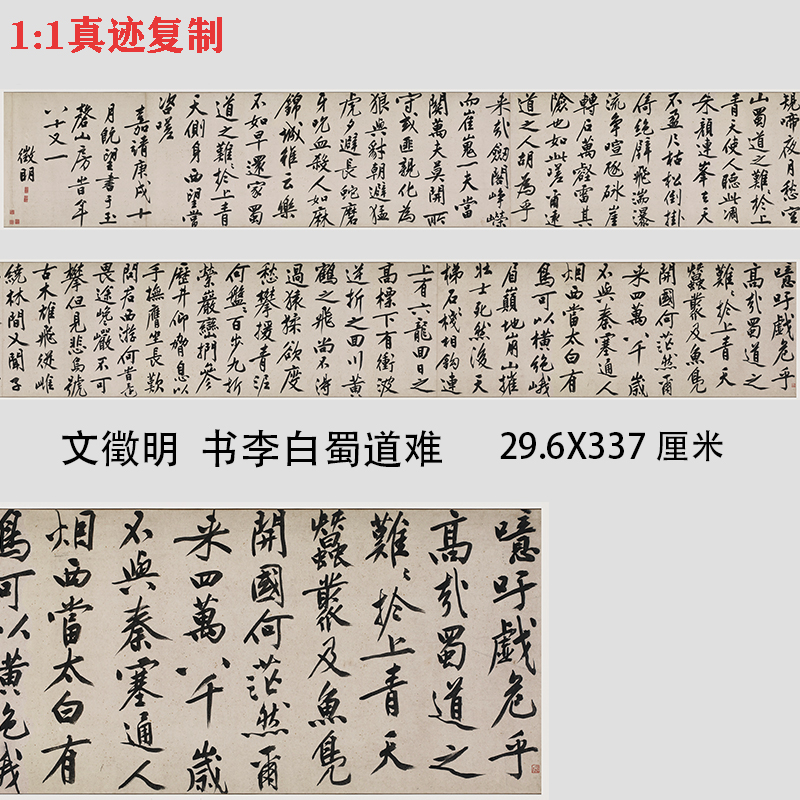 1:1真迹复制
規啼夜月愁空
山蜀道之難於上
青天使人聽此凋
朱顏連峯去天
不盈尺枯松倒掛
倚絕壁飛湍瀑
流爭喧豗砯崖
轉石萬壑雷其
險也如此嗟爾遠
道之人胡為乎
來哉劔閣崢嶸
而崔嵬一夫當
關萬夫莫開所
守或匪親化為
狼與豺朝避猛
虎夕避長蛇磨
牙吮血殺人如麻
錦城雖云樂
不如早還家蜀
道之難於上青
天側身西望常
咨嗟
嘉靖庚戌十
月既望書于玉
磬山房旹年
八十又一
徵明
噫吁戲危乎
高哉蜀道之
難〻於上青天
蠶叢及魚鳧
開國何茫然爾
來四萬八千歲
不與秦塞通人
烟西當太白有
鳥可以橫絕峨
眉巔地崩山摧
壯士死然後天
梯石棧相鉤連
上有六龍回日之
高標下有衝波
逆折之回川黃
鶴之飛尚不得
過猿猱欲度
愁攀援青泥
何盤〻百步九折
縈巖巒捫參
歷井仰脅息以
手撫膺坐長歎
問君西游何當還
畏途巉巖不可
攀但見悲鳥號
古木雄飛從雌
繞林間又聞子
文徵明 书李白蜀道难 29.6X337 厘米
噫吁戲危乎
高哉蜀道之
難〻於上青天
蠶叢及魚鳧
開國何茫然爾
來四萬八千歲
不與秦塞通人
烟西當太白有
鳥可以橫絕峨